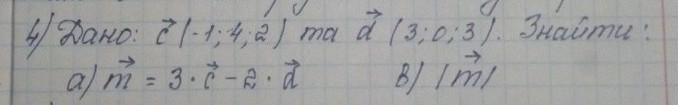 4) Дано: c⃗ (-1; 4; 2) та d⃗ (3; 0; 3). Знайти:
а) m⃗ = 3 · c⃗ - 2 · d⃗ в) |m⃗|